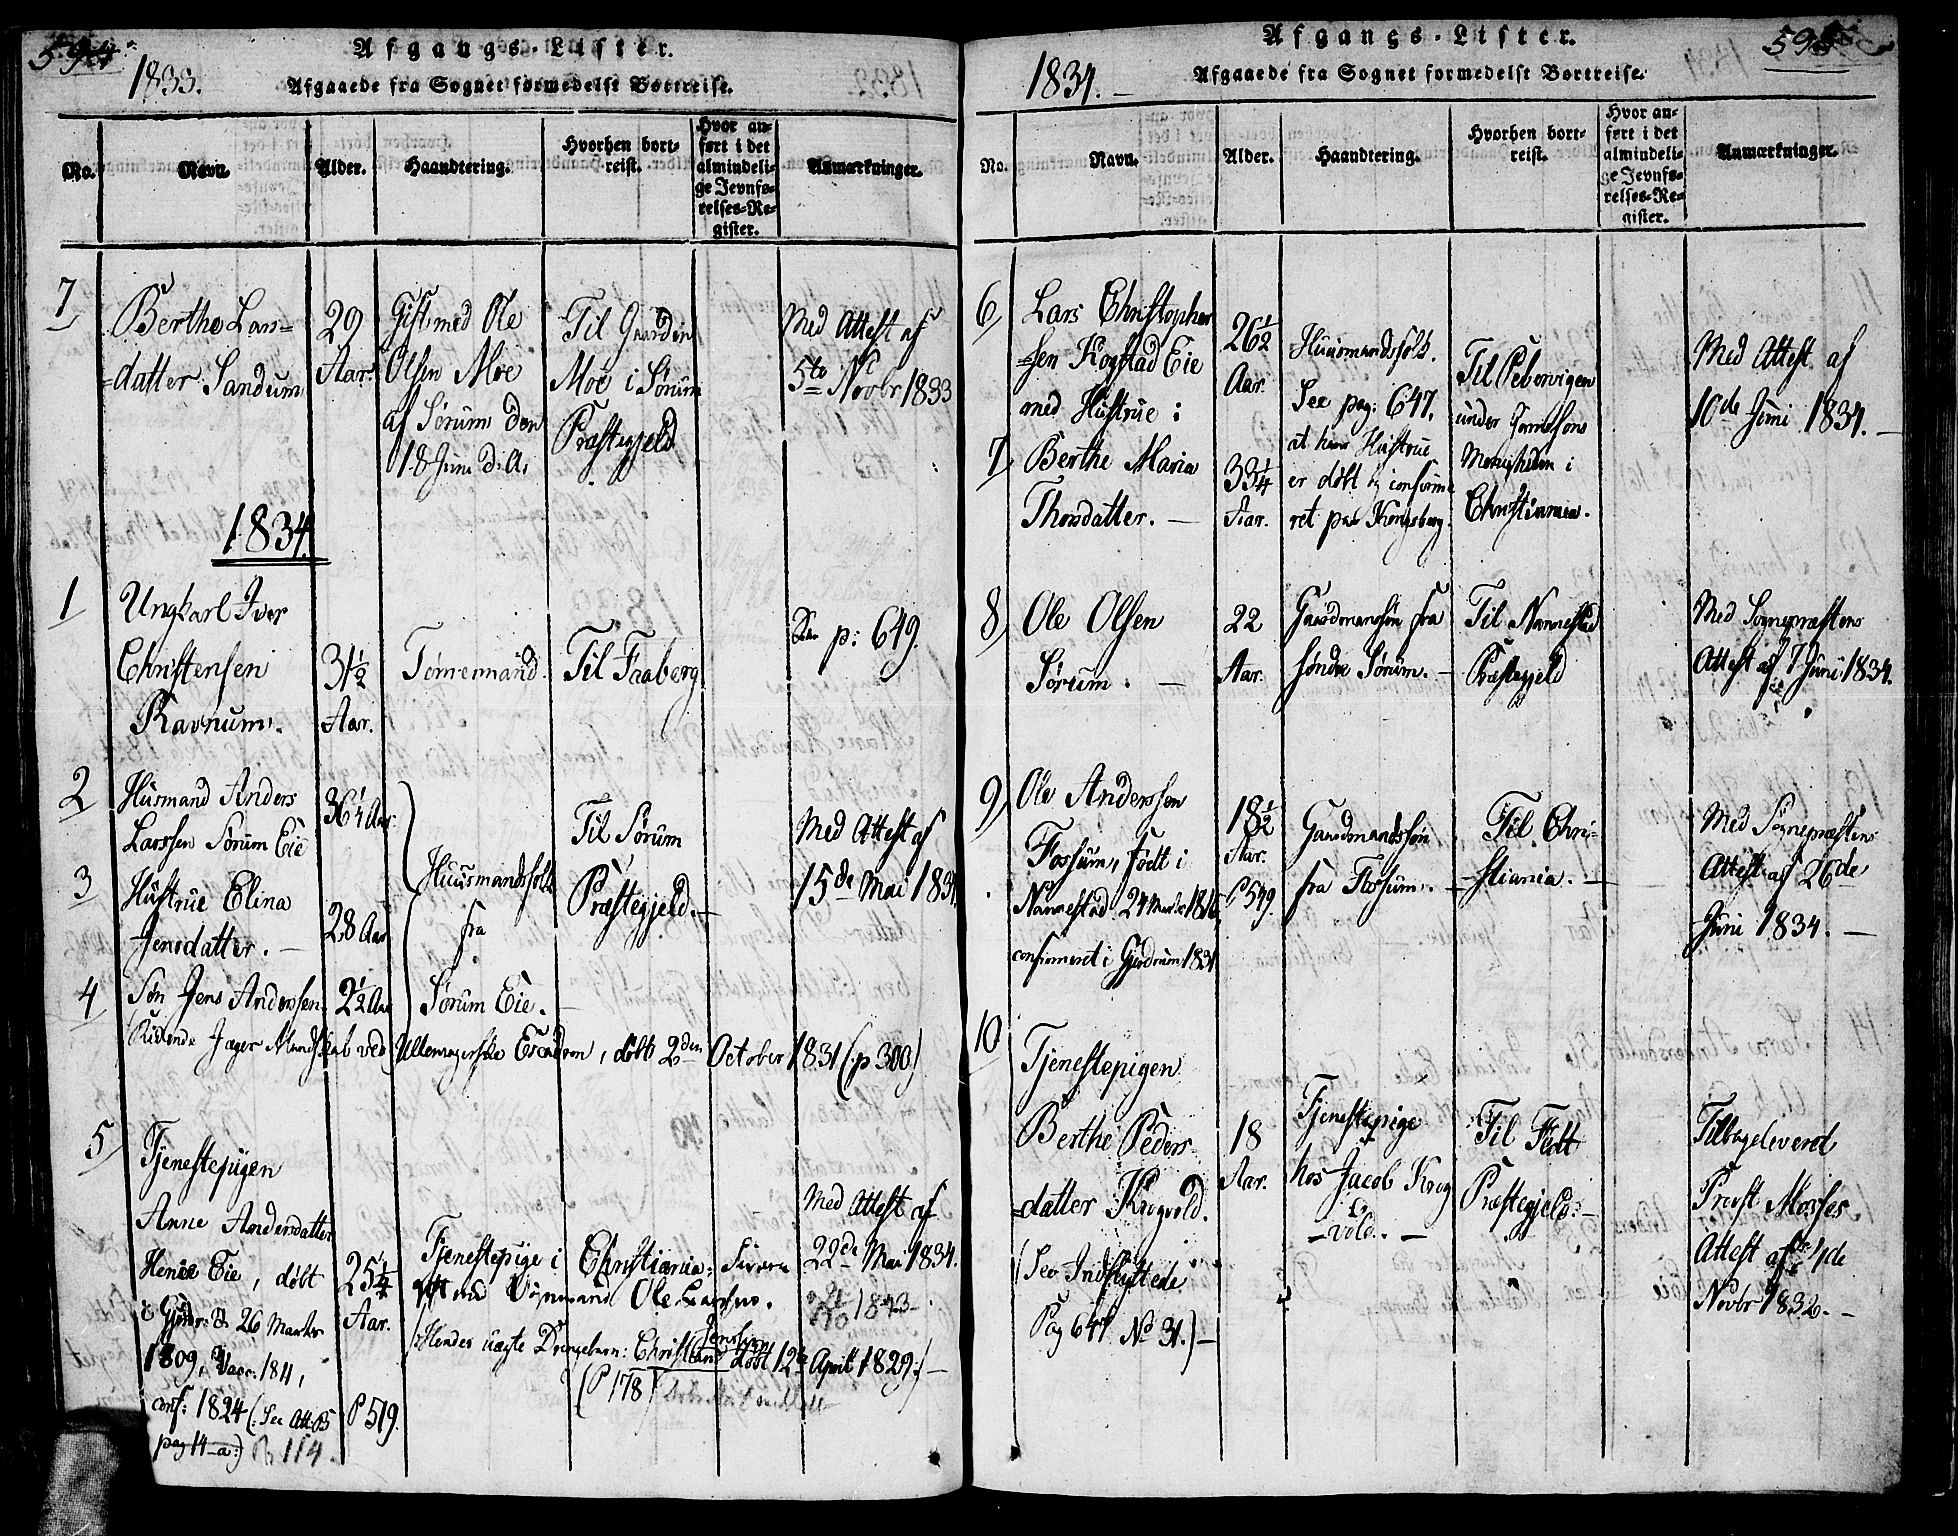 594.
Afgangs-Lister.
1833.
Afgaaede fra Sognet formedelst Bortreise.
No.
Navn.
Alder.
Haandtering.
Hvorhen bort-
reist.
Hvor an-
ført i det
almindeli-
ge Jevnfø-
relses-Re-
gister.
Anmærkninger.
7
Berthe Lars=
=datter Sandum
29
Aar.
Gift med Ole
Olsen Moe
af Sørum den
18 Juni d: A:
Til Gaarden
Moe i Sørum
Præstegjeld
Med Attest af
5te Novbr 1833
1834.
1
Ungkarl Iver
Christensen
Ravnum.
31½
Aar.
Tømermand.
Til Faaberg
p: 649.
2
Husmand Anders
Larssen Sørum Eie
36¼ Aar.
3
Hustrue Elina
Jensdatter. —
28 Aar
4
Søn Jens Anderssen.
2½ Aar
Huusmandsfolk
fra
Sørum Eie. —
Til Sørum
Præstegjeld. —
Med Attest af
15de Mai 1834.
Ridende Jæger Mandskab ved Ullensagerske Escadron, døbt 2den October 1831 (p 300)
5
Tjenestepigen
Anne Andersdatter
Eie, døbt
i Gjdr: d. 26 Marts
1809, Vacc: 1811,
conf: 1824 (: See Att:
pag 14-a:) P. 114.
25¼
Aar.
P 519.
Tjenestepige i
Ole Larssen.
Christiania:
Med Attest af
22de Mai 1834.
1843
(: Hendes uægte Drengebarn: Christian døbt 12te April 1829:) —
(P 178)
595
Afgangs-Lister.
1834. —
Afgaaede fra Sognet formedelst Bortreise.
No.
Navn.
Alder.
Haandtering.
Hvorhen bort-
reist.
Hvor an-
ført i det
almindeli-
ge Jevnfø-
relses-Re-
gister.
Anmærkninger.
6,
Lars Christopher
=sen Kogstad Eie
med Hustrue:
26½
Aar.
7,
Berthe Maria
Thordatter. —
33¼
Aar.
Huusmandsfolk.
See pag: 647,
at hans Hustrue
er døbt og confirme
ret paa Kongsberg.
Til Pebervigen
under
Menigheden i
Christiania.
Med Attest af
10de Juni 1834. —
8,
Ole Olsen
Sørum. —
22
Aar.
Gaardmandssøn fra
søndre Sørum. —
Til Nannestad
Præstegjeld
Med Sognepræstens
Attest af 7 Juni 1834.
9,
Ole Anderssen
Fossum, født i
Nannestad 24 Marts 1816,
confirmeret i Gjerdrum 1831
18½
Aar.
P 549.
Gaardmandssøn
fra Fossum. —
Til Chri-
stiania. —
Med Sognepræstens
Attest af 26de
Juni 1834. —
10
Tjenestepigen
Berthe Peders-
=datter Krogvold.
(See Indflyttede
Pag 647 No 31.) —
18
Aar.
Tjenestepige
hos Jacob Krog
-vold. —
Til Fedt
Præstegjeld. —
Tilbageleveret
Provst Mosses
Attest af 4de
Novbr 1832. —